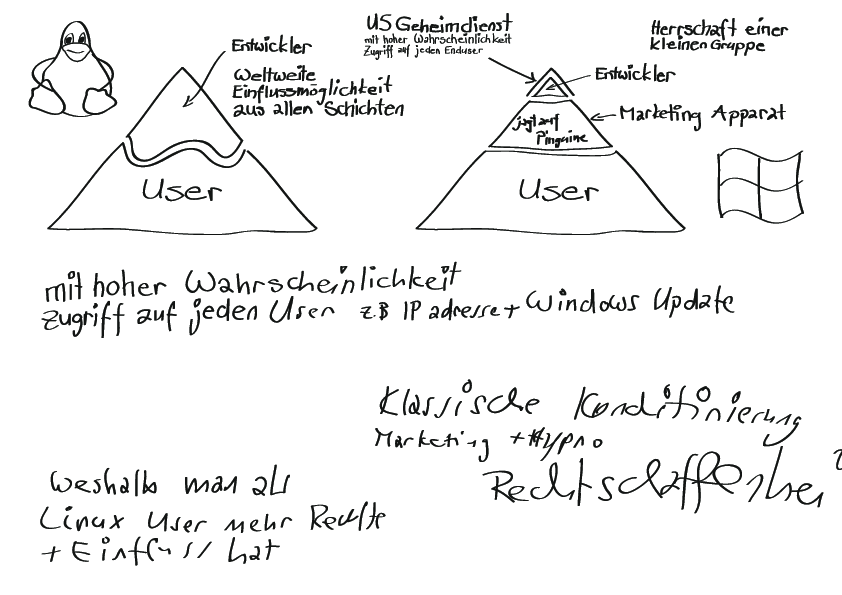 Entwickler
Weltweite
Einflussmöglichkeit
aus allen Schichten
User
US Geheimdienst
mit hoher Wahrscheinlichkeit
Zugriff auf jeden Enduser
Herrschaft einer
kleinen Gruppe
Entwickler
Marketing Apparat
jagt auf
Pinguine
User
mit hoher Wahrscheinlichkeit
Zugriff auf jeden User z.B IP adresse + Windows Update
Klassische Konditinierung
Marketing + Hypno
Rechtschaffenhei
weshalb man als
Linux User mehr Rechte
+ Einfluss hat